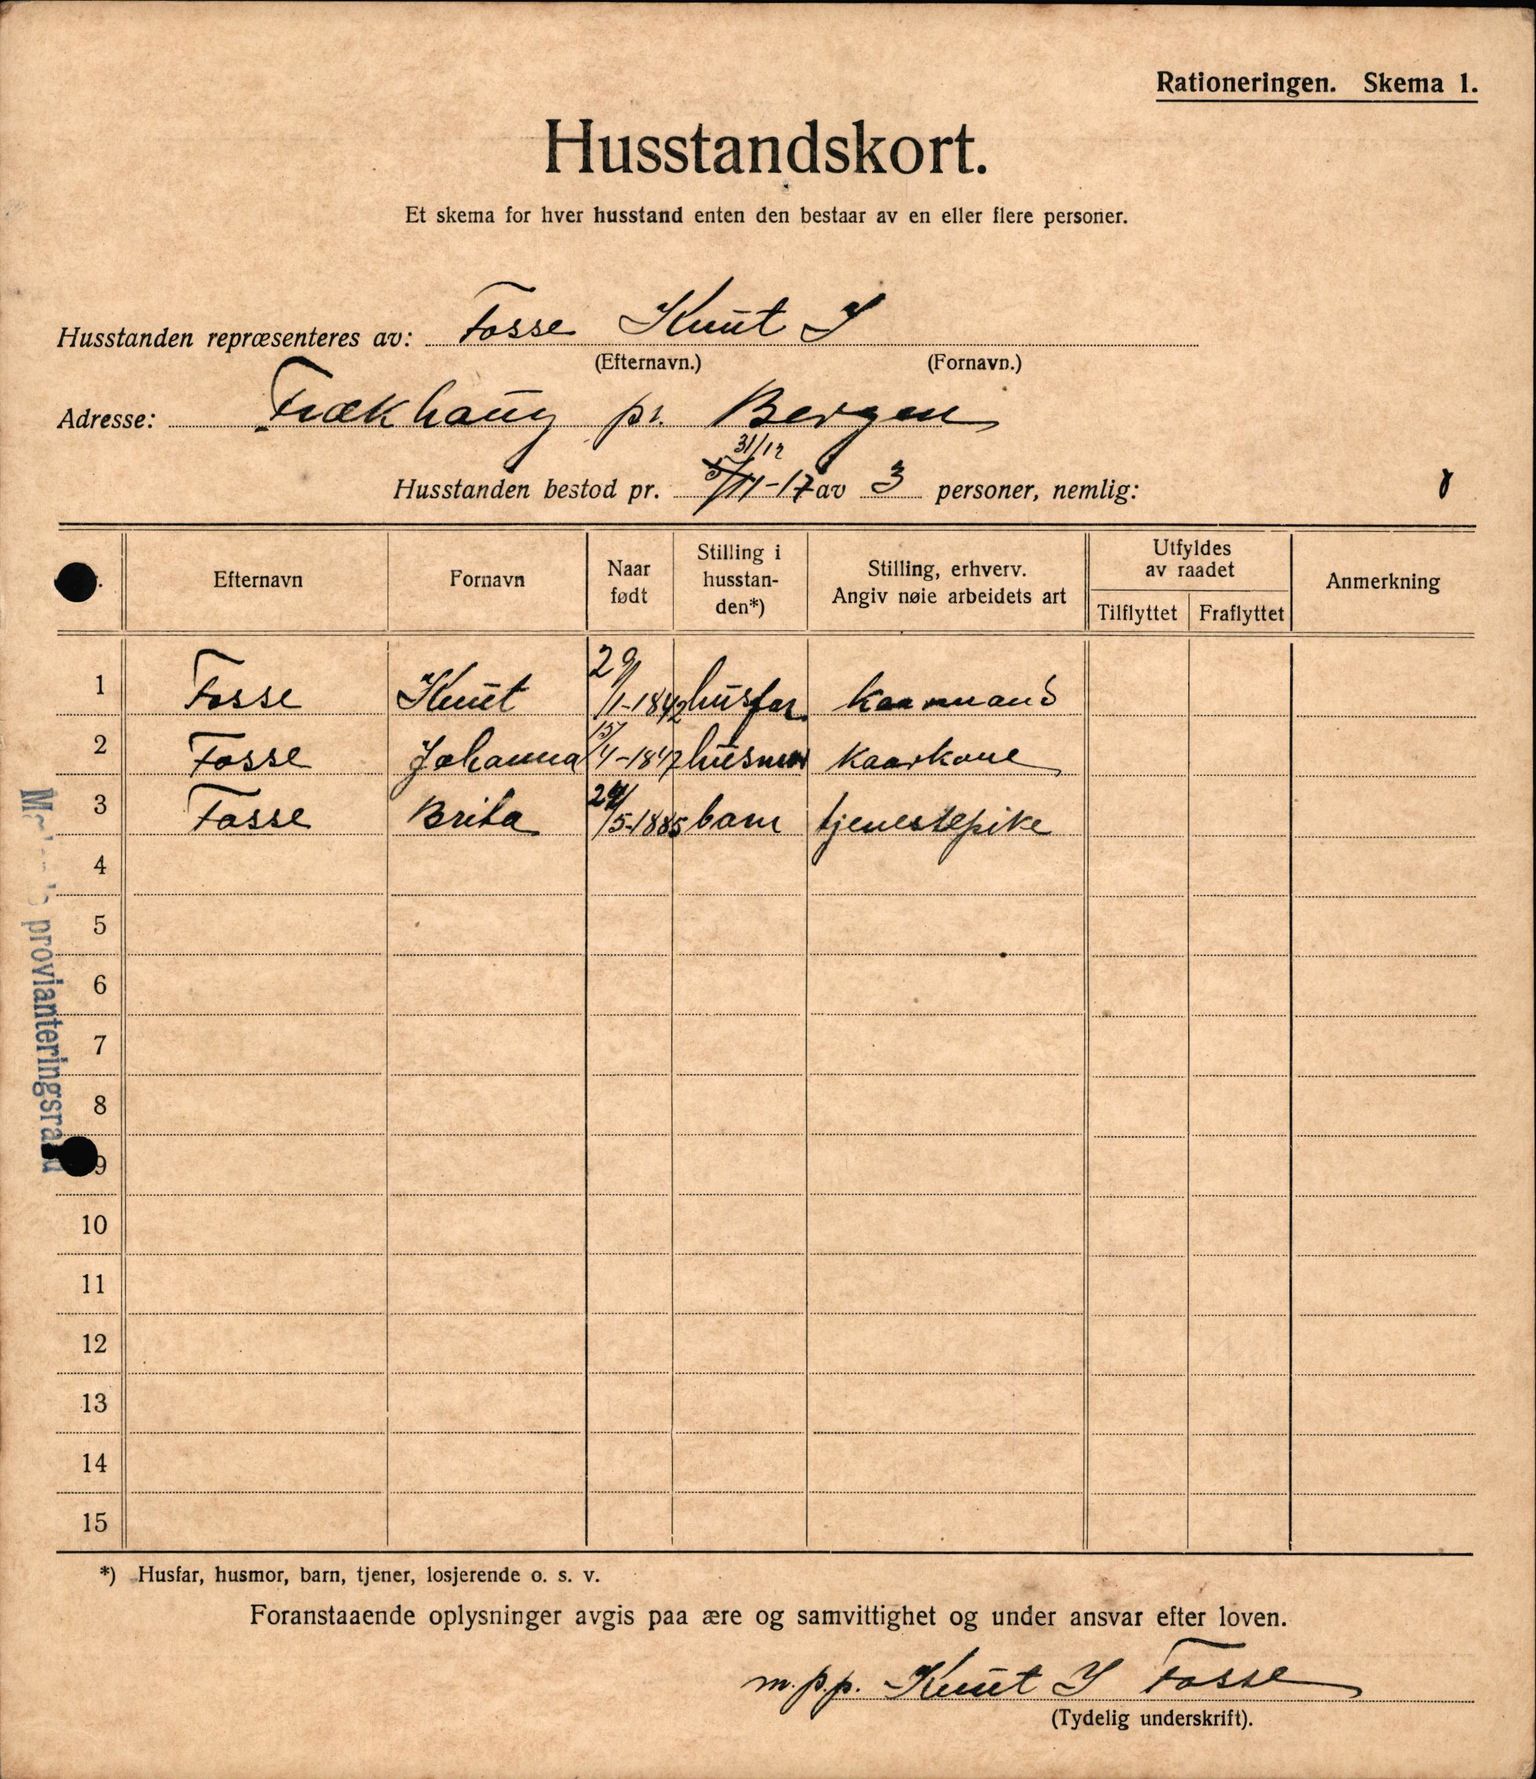 Rationeringen. Skema 1.
Husstandskort.
Et skema for hver husstand enten den bestaar av en eller flere personer.
Husstanden repræsenteres av: Fosse Knut I
(Efternavn.) (Fornavn.)
Adresse: Frækhaug pr. Bergen
31/12
Husstanden bestod pr. 5/11-17 av 3 personer, nemlig:
Efternavn Fornavn Naar født Stilling i husstan-den*) Stilling, erhverv. Angiv nøie arbeidets art Utfyldes av raadet Tilflyttet Fraflyttet Anmerkning
1 Fosse Knut 29/1-1842 husfar kaarmand
2 Fosse Johanna 15/4-1847 husmor kaarkone
3 Fosse Brita 5-1885 barn tjenestepike
4
5
6
7
8
9
10
11
12
13
14
15
provianteringsraad
*) Husfar, husmor, barn, tjener, losjerende o. s. v.
Foranstaaende oplysninger avgis paa ære og samvittighet og under ansvar efter loven.
m.p.p. Knut I Fosse
(Tydelig underskrift).